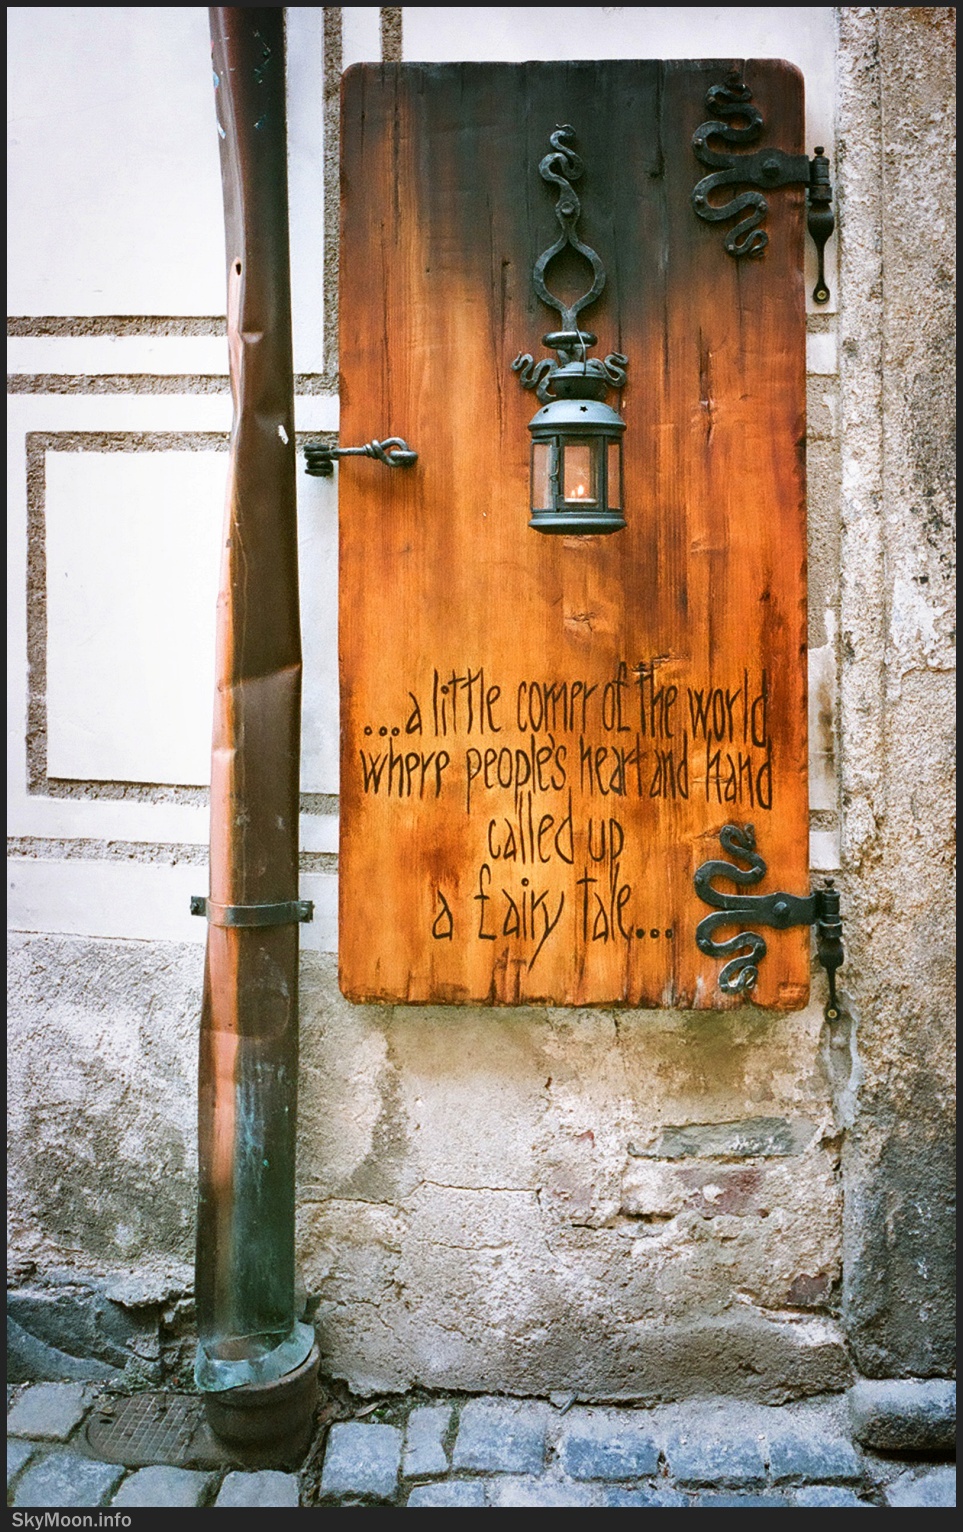 ...a little corner of the world
where people's heart and hand
called up
a fairy tale...
SkyMoon.info